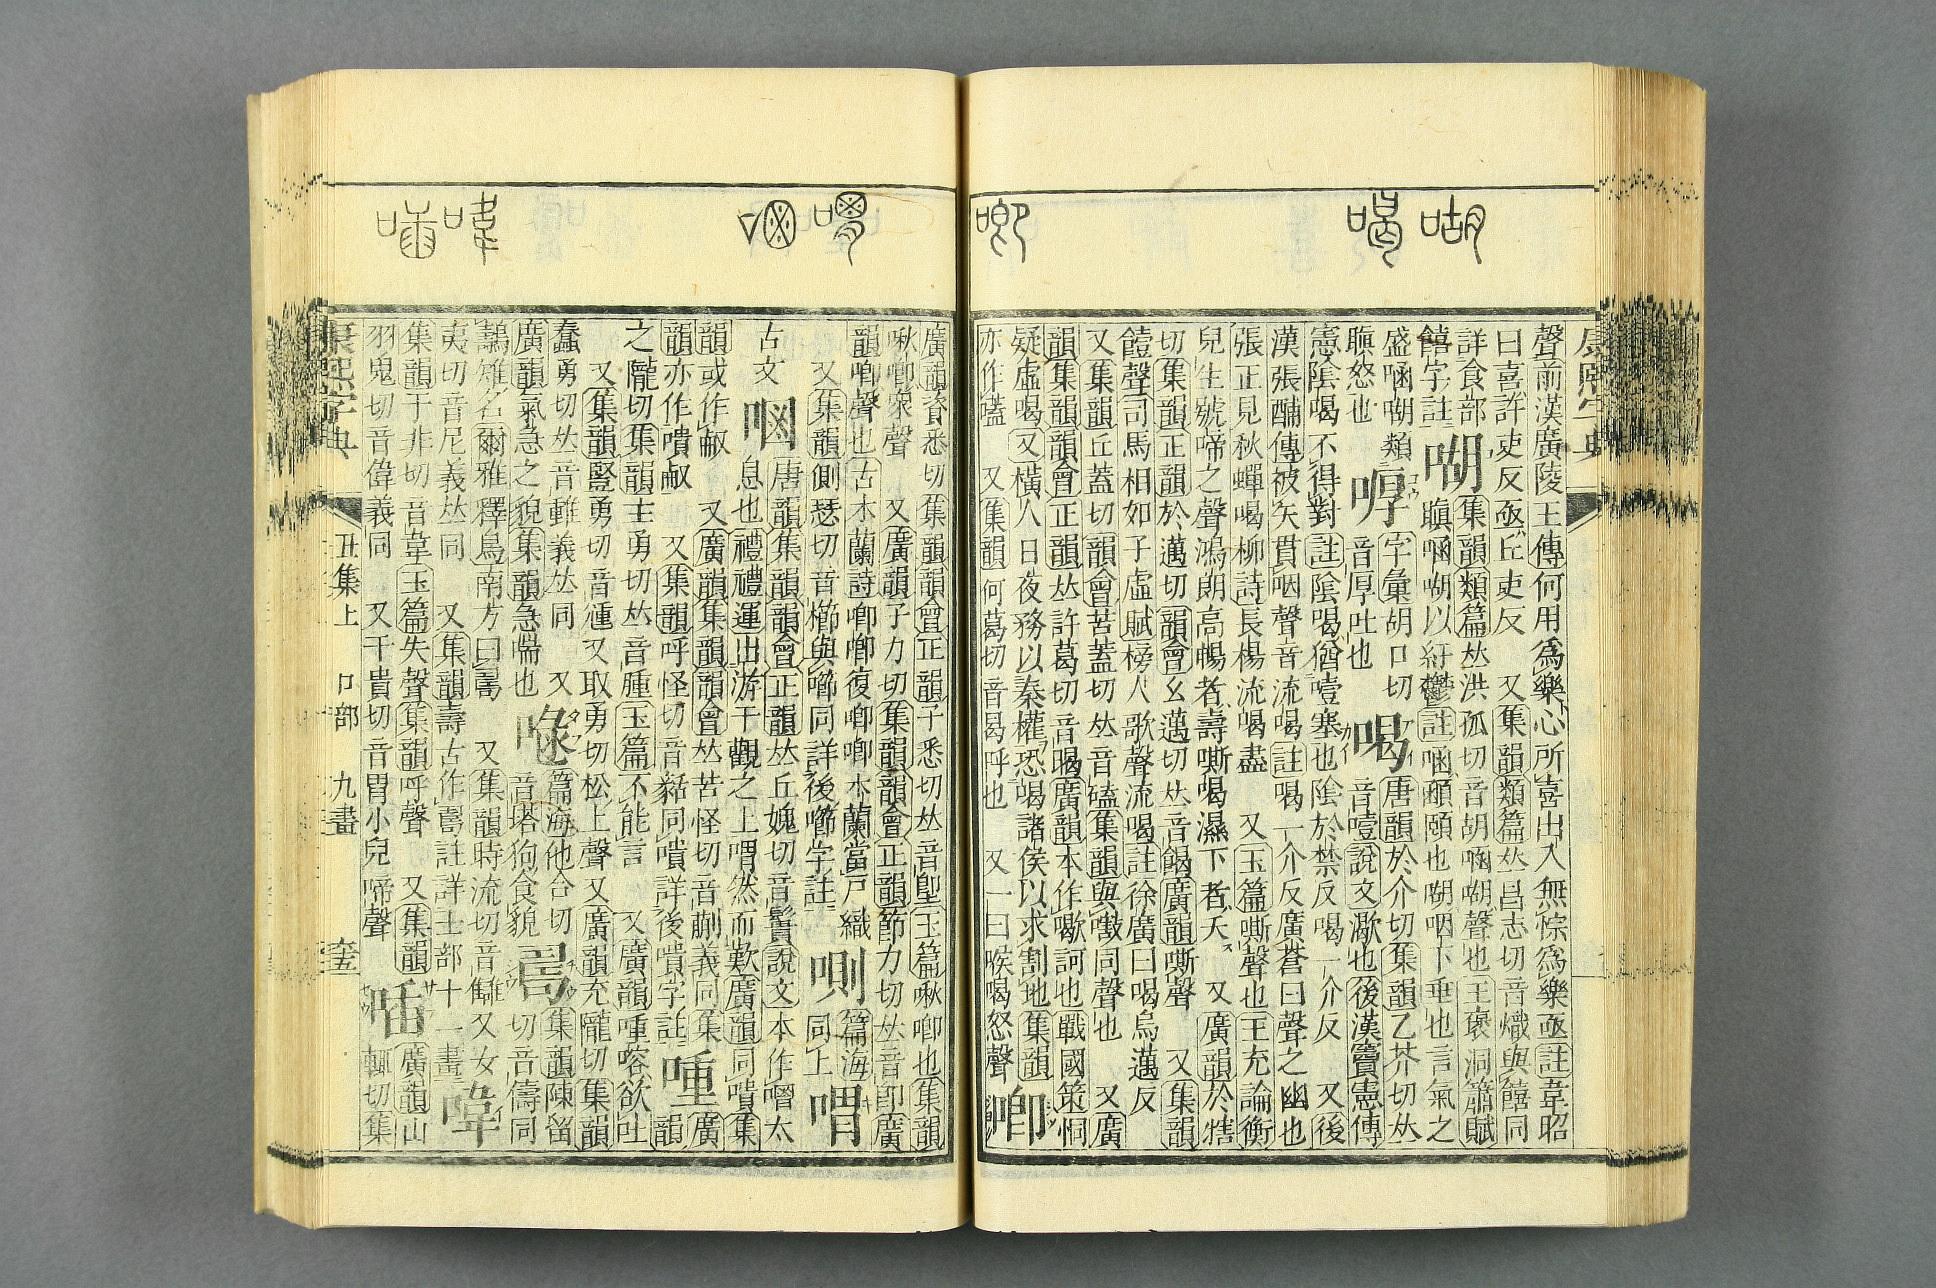 㗅
喝
喞
喟
喗
康熙字典
聲前漢廣陵王傳何用爲樂心所喜出入無悰爲樂亟註韋昭
曰喜許吏反亟丘吏反 又集韻類篇𠀤昌志切音熾與饎同
詳食部
饎字註
㗅 集韻類篇𠀤洪孤切音胡㖤㗅聲也王褒洞簫賦
瞋㖤㗅以紆鬱註㖤顄頤也㗅咽下垂也言氣之
盛㖤㗅類
瞋怒也
㖃 字彙胡口切
音厚吐也
喝 唐韻於介切集韻乙芥切𠀤
音噎說文㵣也後漢竇憲傳
憲陰喝不得對註陰喝猶噎塞也陰於禁反喝一介反 又後
漢張酺傳被矢貫咽聲音流喝註喝一介反廣蒼曰聲之幽也
張正見秋蟬喝柳詩長楊流喝盡 又玉篇嘶聲也王充論衡
兒生號啼之聲鴻朗高暢者壽嘶喝濕下者夭 又廣韻於犗
切集韻正韻於邁切韻會幺邁切𠀤音餲廣韻嘶聲 又集韻
饐聲司馬相如子虛賦榜人歌聲流喝註徐廣曰喝烏邁反
又集韻丘蓋切韻會苦蓋切𠀤音磕集韻與 同聲也 又廣
韻集韻韻會正韻𠀤許葛切音暍廣韻本作歇訶也戰國策恫
疑虛喝 又橫人日夜務以秦權恐喝諸侯以求割地集韻
亦作 又集韻何葛切音曷呼也 又一曰喉喝怒聲
喞
廣韻資悉切集韻韻會正韻子悉切𠀤音堲玉篇啾喞也集韻
啾喞衆聲 又廣韻子力切集韻韻會正韻節力切𠀤音卽廣
韻喞聲也古木蘭詩喞喞復喞喞木蘭當戸織
又集韻側瑟切音櫛與㘉同詳後㘉字註
篇海
同上
喟
古文
唐韻集韻韻會正韻𠀤丘媿切音 說文本作 太
息也禮禮運出游于觀之上喟然而歎廣韻同嘳集
韻或作㕟 又廣韻集韻韻會𠀤苦怪切音蒯義同集
韻亦作嘳㕟 又集韻呼怪切音 同嘳詳後嘳字註
喠 廣
韻
之隴切集韻主勇切𠀤音腫玉篇不能言 又廣韻喠㗋欲吐
又集韻豎勇切音尰又取勇切松上聲又廣韻充隴切集韻
蠢勇切𠀤音 義𠀤同 又
廣韻氣急之貌集韻急喘也
篇海他合切
音塔狗食貌
集韻陳留
切音儔同
鷊雉名爾雅釋鳥南方曰 又集韻時流切音讎又女
夷切音尼義𠀤同 又集韻壽古作 註詳士部十一畫
喡
集韻于非切音韋玉篇失聲集韻呼聲 又集韻
羽鬼切音偉義同 又于貴切音胃小兒啼聲
廣韻山
輒切集
康熙字典 丑集上 口部 九畫